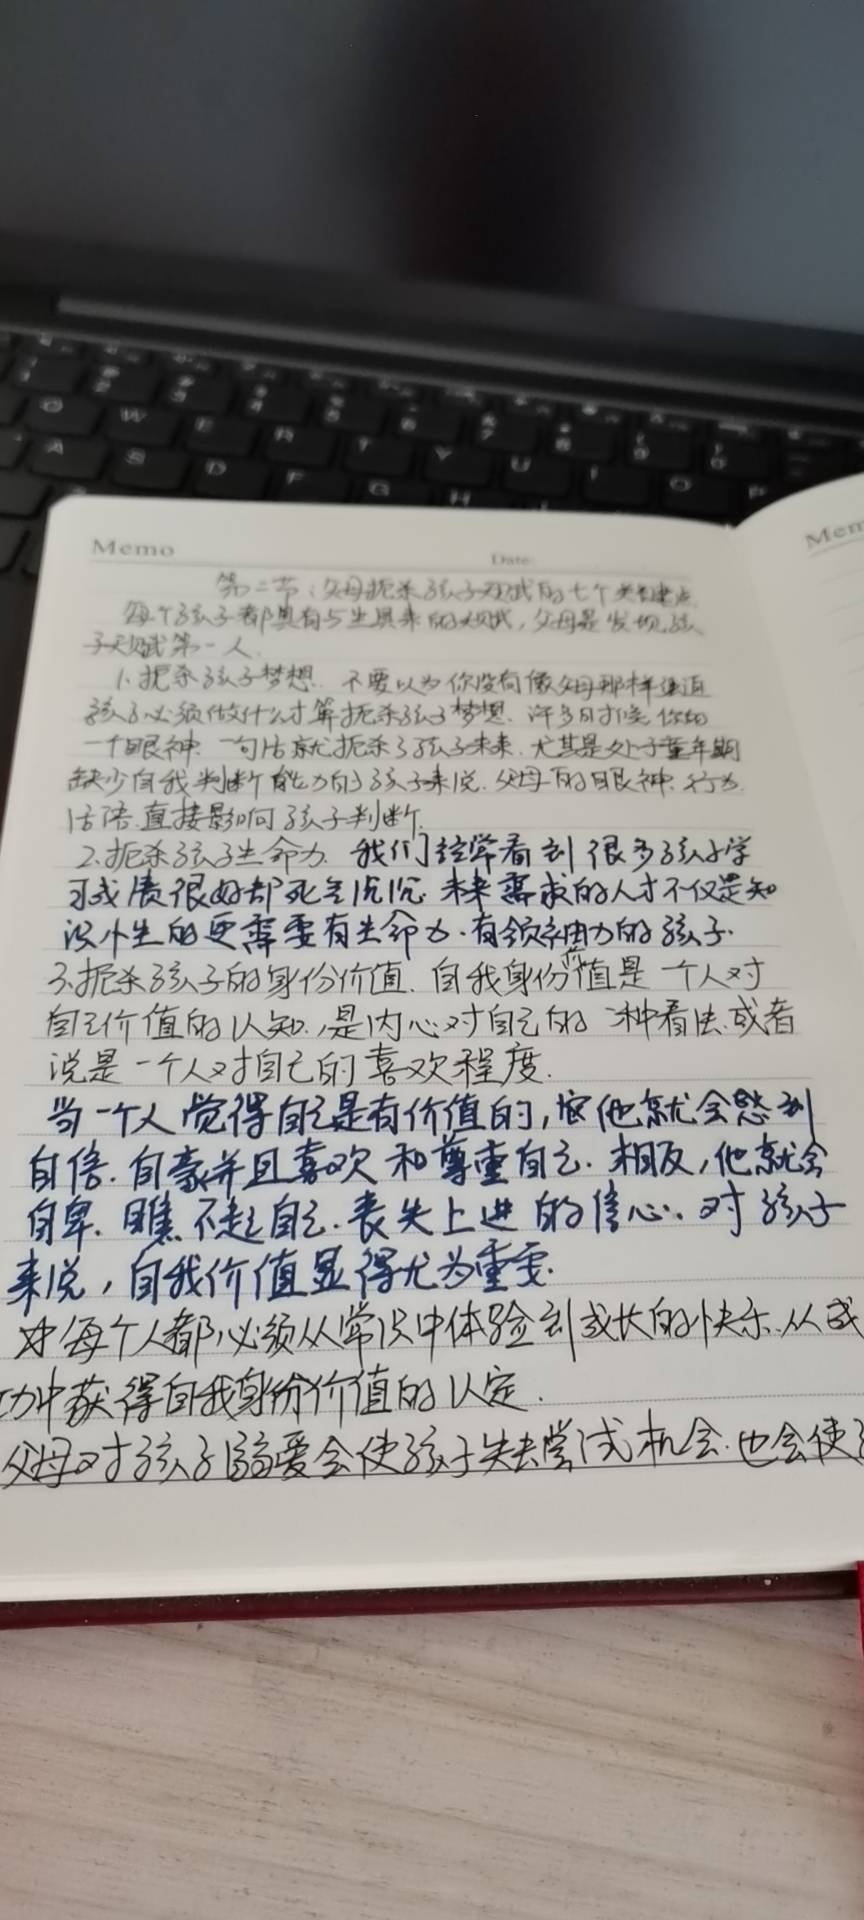 Memo
Date:
Mem
Q W E R T Y U I O P
A S D F G H
第二节：父母扼杀孩子天赋的七个关键点
每个孩子都具有与生具来的天赋，父母是发现孩
子天赋第一人.
1.扼杀孩子梦想. 不要以为你没有像父母那样逼迫
孩子必须做什么才算扼杀孩子梦想. 许多时候你的
一个眼神、一句话就扼杀了孩子未来. 尤其是处于童年期
缺少自我判断能力的孩子来说. 父母的眼神. 行为.
话语.直接影响孩子判断.
2.扼杀孩子生命力. 我们经常看到很多孩子学
习成绩很好却死气沉沉. 未来需求的人才不仅是知
识 的更需要有生命力.有领袖力的孩子.
3.扼杀孩子的身份价值. 自我身份价值是一个人对
自己价值的认知,是内心对自己的一种看法.或者
说是一个人对自己的喜欢程度.
当一个人觉得自己是有价值的, 他就会感到
自信.自豪并且喜欢和尊重自己. 相反,他就会
自卑. 瞧不起自己.丧失上进的信心. 对孩子
来说,自我价值显得尤为重要.
每个人都必须从常识中体验到成长的快乐.从成
功中获得自我身份价值的认定.
父母对孩子溺爱会使孩子失去尝试机会.也会使